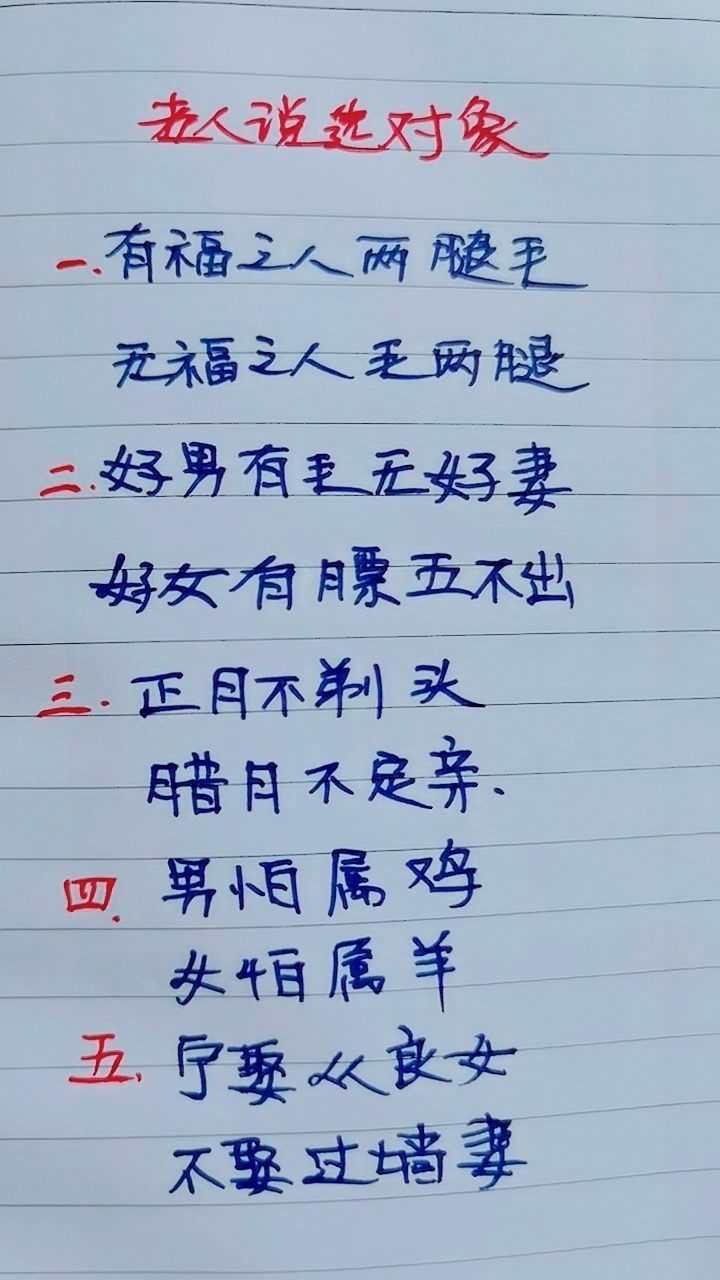 老人说选对象
一.有福之人两腿毛
无福之人毛两腿
二.好男有毛无好妻
好女有膘五不出
三.正月不剃头
腊月不定亲.
四.男怕属鸡
女怕属羊
五.宁娶从良女
不娶过墙妻